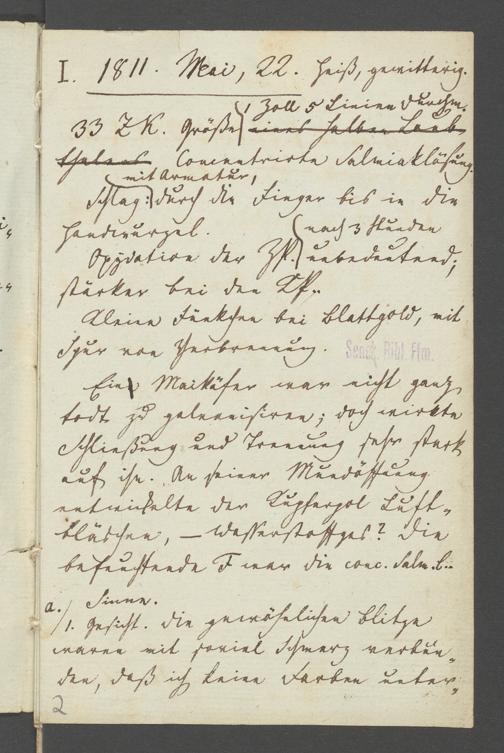 I. 1811. Mai, 22. heiß, gewitterig.
1 Zoll 5 Linien Durchm.
33 ZK. Größe eines halben Laub
thalers Concentrirte Salmiaklösung.
mit Armatur,
Schlag: durch die Finger bis in die
Handwurzel.
nach 3 Stunden
Oxydation der ZP. unbedeutend;
stärker bei den KP.
Kleine Fünkchen bei Blattgold, mit
Spur von Verbrennung.
Senck. Bibl. Ffm.
Ein Maikäfer war nicht ganz
todt zu galvanisiren; doch wirkte
Schließung und Trennung sehr stark
auf ihn. An seiner Mundöffnung
entwickelte der Kupferpol Luft-
bläschen, – Wasserstoffgas? Die
befeuchtende F war die conc. Salm.l.
a. Sinne.
1. Gesicht. Die gewöhnlichen Blitze
waren mit soviel Schmerz verbun-
den, daß ich keine Farben unter-
2